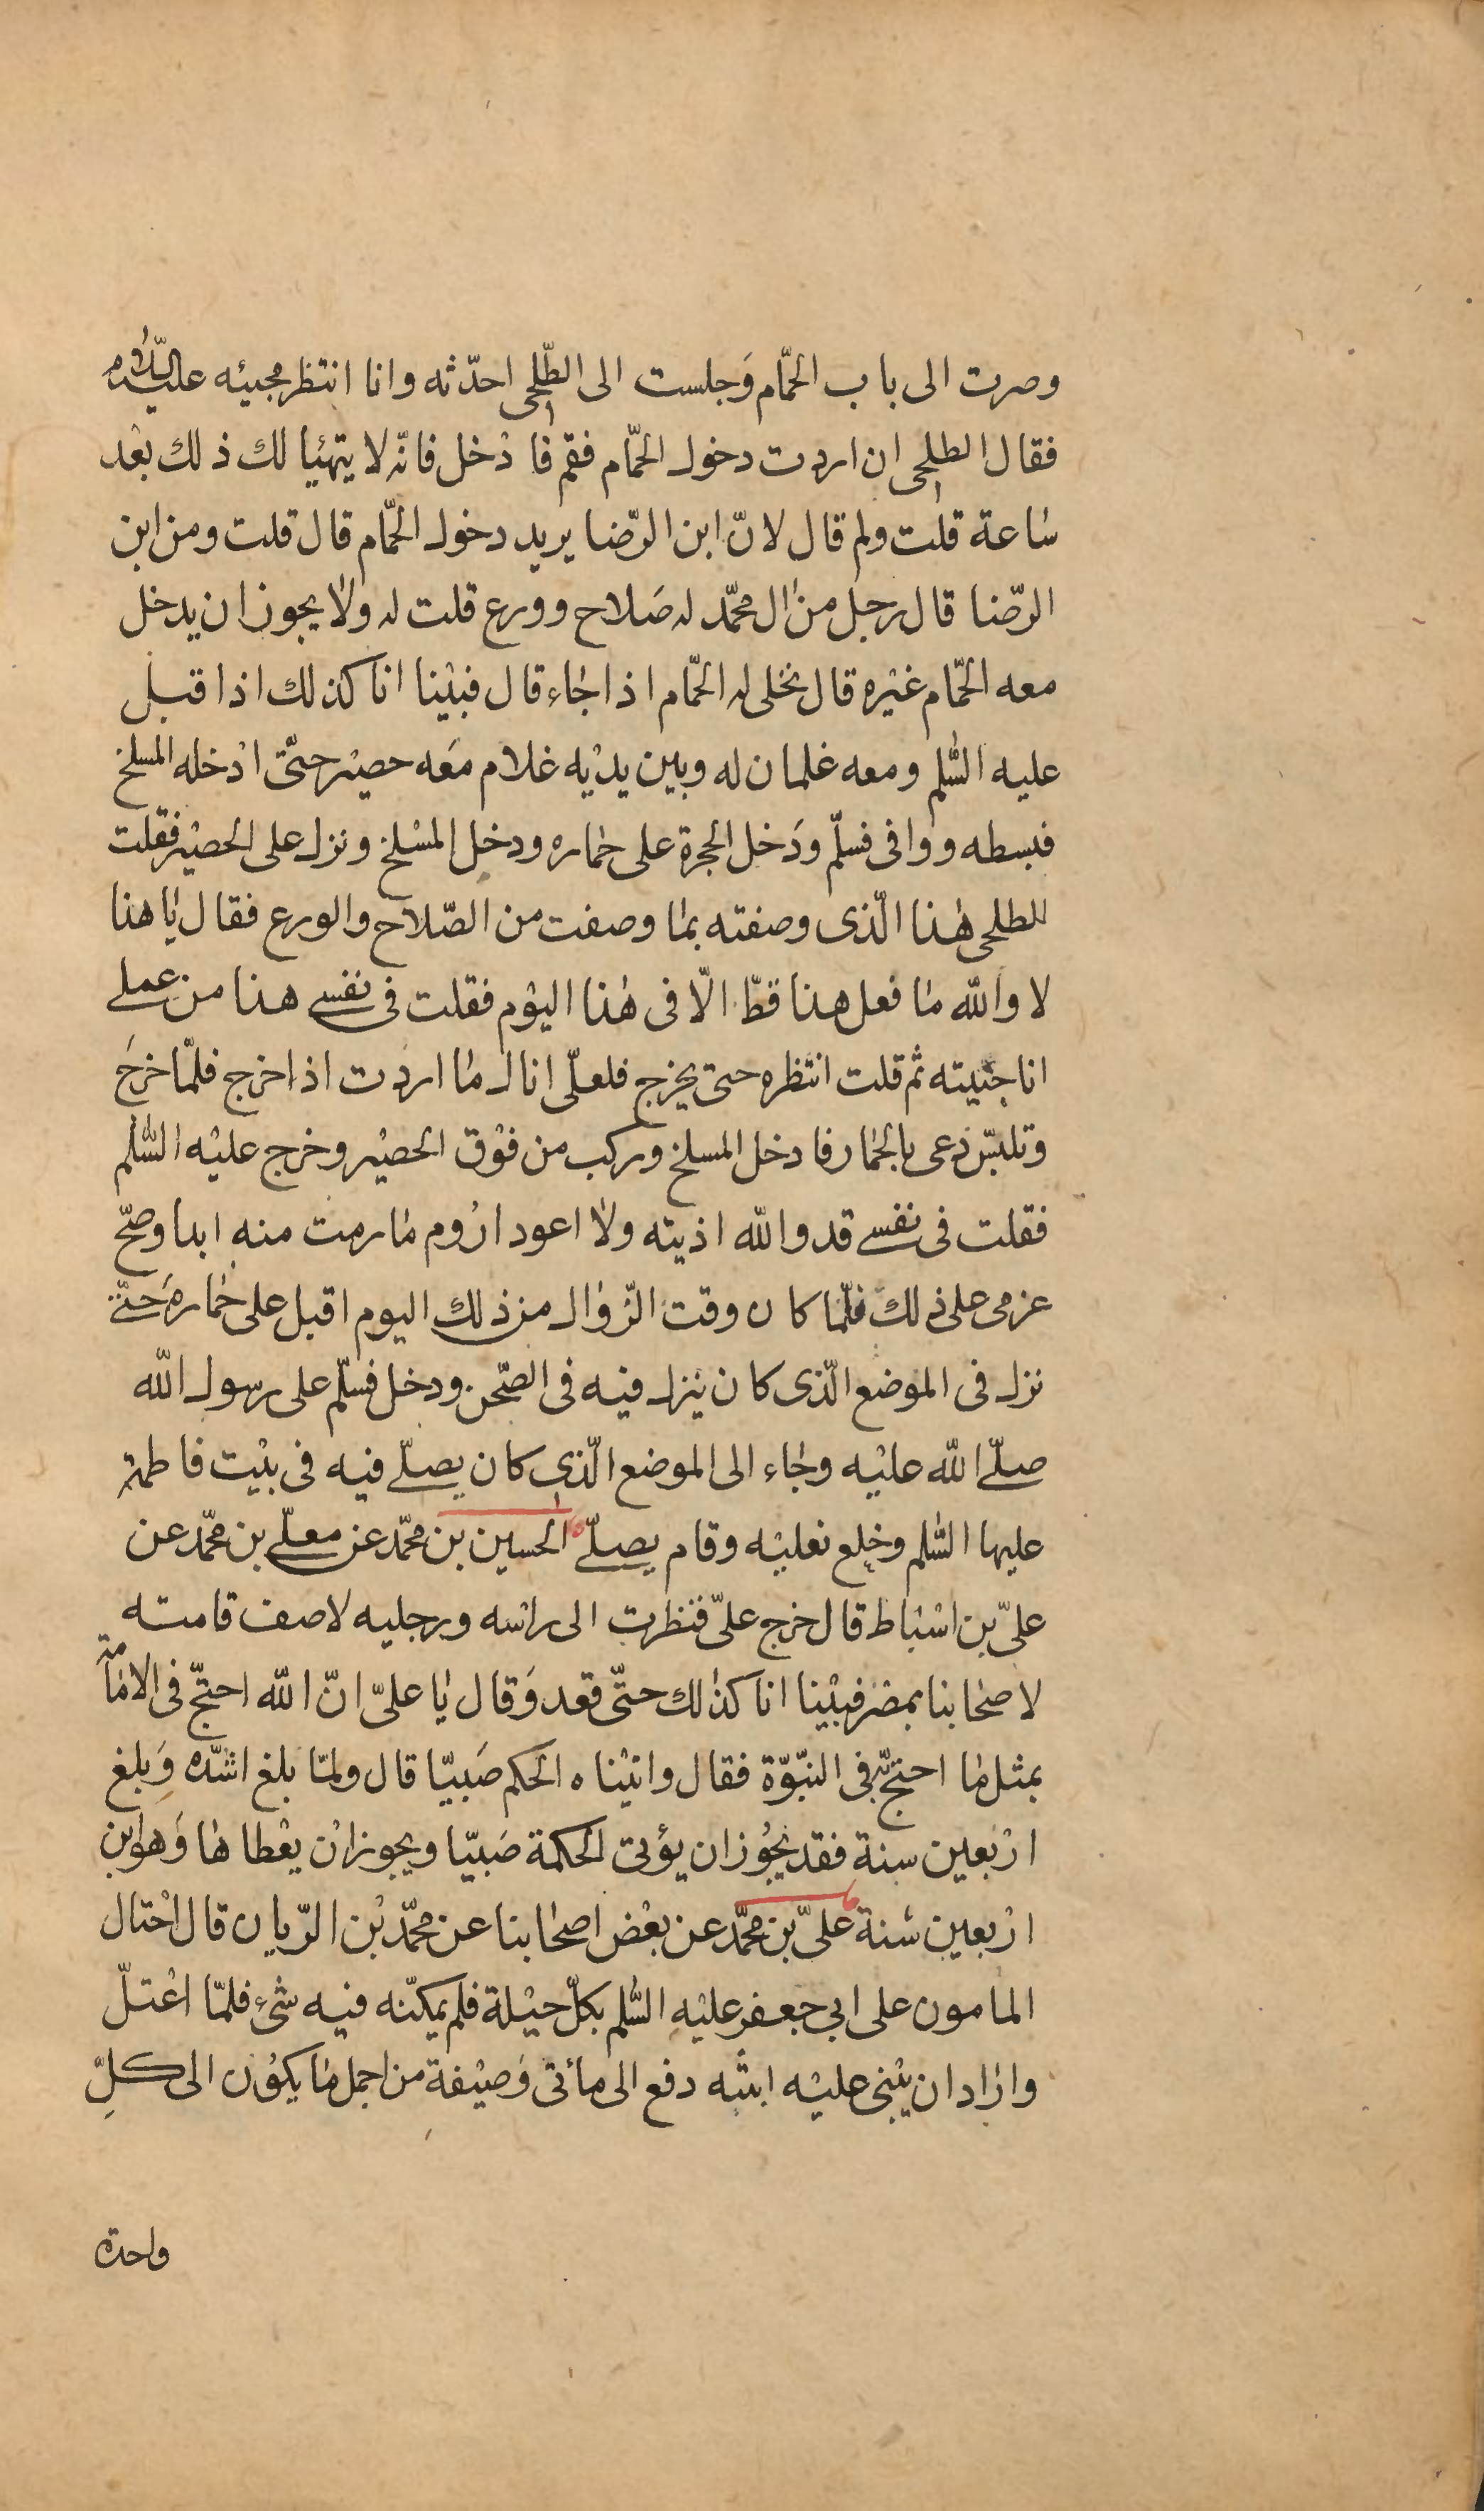 وصرت الى باب الحمّام وَجلست الى الطّلحى احدّثه وانا انتظر مجيئه عليه السّلام
فقال الطلحى ان اردت دخول الحمّام فقم فادْخل فانّه لا يتهيّا لك ذلك بعْد
سٰاعة قلت ولم قال لانّ ابن الرّضا يريد دخول الحمّام قال قلت ومن ابن
الرّضا قال رجل من اٰل محمّد له صَلاح وورع قلت له ولا يجوز ان يدخل
معه الحمّام غيْره قال نخلى له الحمّام اذا جٰاء قال فبيْنا انا كذلك اذ اقبل
عليه السّلم ومعه غلمان له وبين يديْه غلام مَعه حصيْر حتّى ادْخله المسلخ
فبسطه ووافى فسلّم ودَخل الحجرة على حمٰاره ودخل المسْلخ ونزل على الحصيْر فقلت
للطلحى هٰذا الّذى وصفته بمٰا وصفت من الصّلاح والورع فقال يٰا هذا
لا واللّه مٰا فعل هذا قطّ الّا فى هٰذا اليوْم فقلت فى نفسے هذا من عملے
انا جنيته ثم قلت انتظره حتى يخرج فلعلّى انال مٰا اردت اذا خرج فلمّا خرجَ
وتلبّس دعى بالحمٰار فادخل المسلخ وركب من فوْق الحصيْر وخرج عليْه السّلم
فقلت فى نفسے قد واللّه اذيته ولا اعود ارُوم مٰا رمت منه ابدا وصحّ
عزمى على ذلك فلمّا كان وقت الزّوٰال من ذلك اليوم اقبل على حمٰاره حَتّے
نزل فى الموضع الّذى كان ينزل فيه فى الصّحن ودخل فسلّم على رسول اللّه
صلّے اللّه عليْه وجٰاء الى الموضع الّذى كان يصلّے فيه فى بيْت فاطمة
عليها السّلم وخلع نعليْه وقام يصلّے الحسين بن محمّد عن معلّے بن محمّد عن
علىّ بن اسْبٰاط قال خرج علىّ فنظرت الى رأسه ورجليه لاصف قامته
لاصحٰابنا بمصْر فبيْنا انا كذٰلك حتّى قعد وَقال يٰا علىّ انّ اللّه احتجّ فى الامٰامة
بمثل مٰا احتجّ به فى النبّوّة فقال واتيْناه الحكم صَبيّا قال ولمّا بلغ اشدّه وَبلغ
ارْبعين سنة فقد يجُوز ان يؤتى الحكمة صَبيّا ويجوز انْ يعْطاهٰا وَهو ابن
ارْبعين سَنة علىّ بن محمّد عن بعْض اصحٰابنا عن محمّد بْن الرّيان قال احْتال
المامون على ابى جعفر عليْهِ السّلم بكلّ حيْلة فلم يمكنّه فيه شىْء فلمّا اعْتلّ
وارٰاد ان يبْنى عليْه ابنته دفع الى مائتى وَصيْفة من اجمل مٰا يكوُن الى كلِّ
واحدة